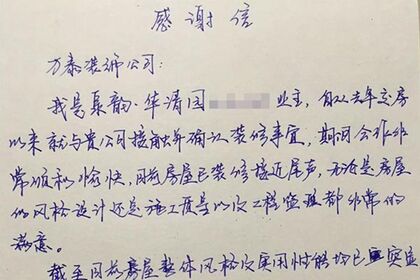 感谢信
万泰装饰公司:
我是泉韵·华清园业主,自从去年交房
以来就与贵公司接触并确认装修事宜,期间合作非
常顺利愉快,目前房屋已装修接近尾声,无论是房屋
的风格设计还是施工质量以及工程监理都非常的
满意。
截至目前房屋整体风格及实用性能均已